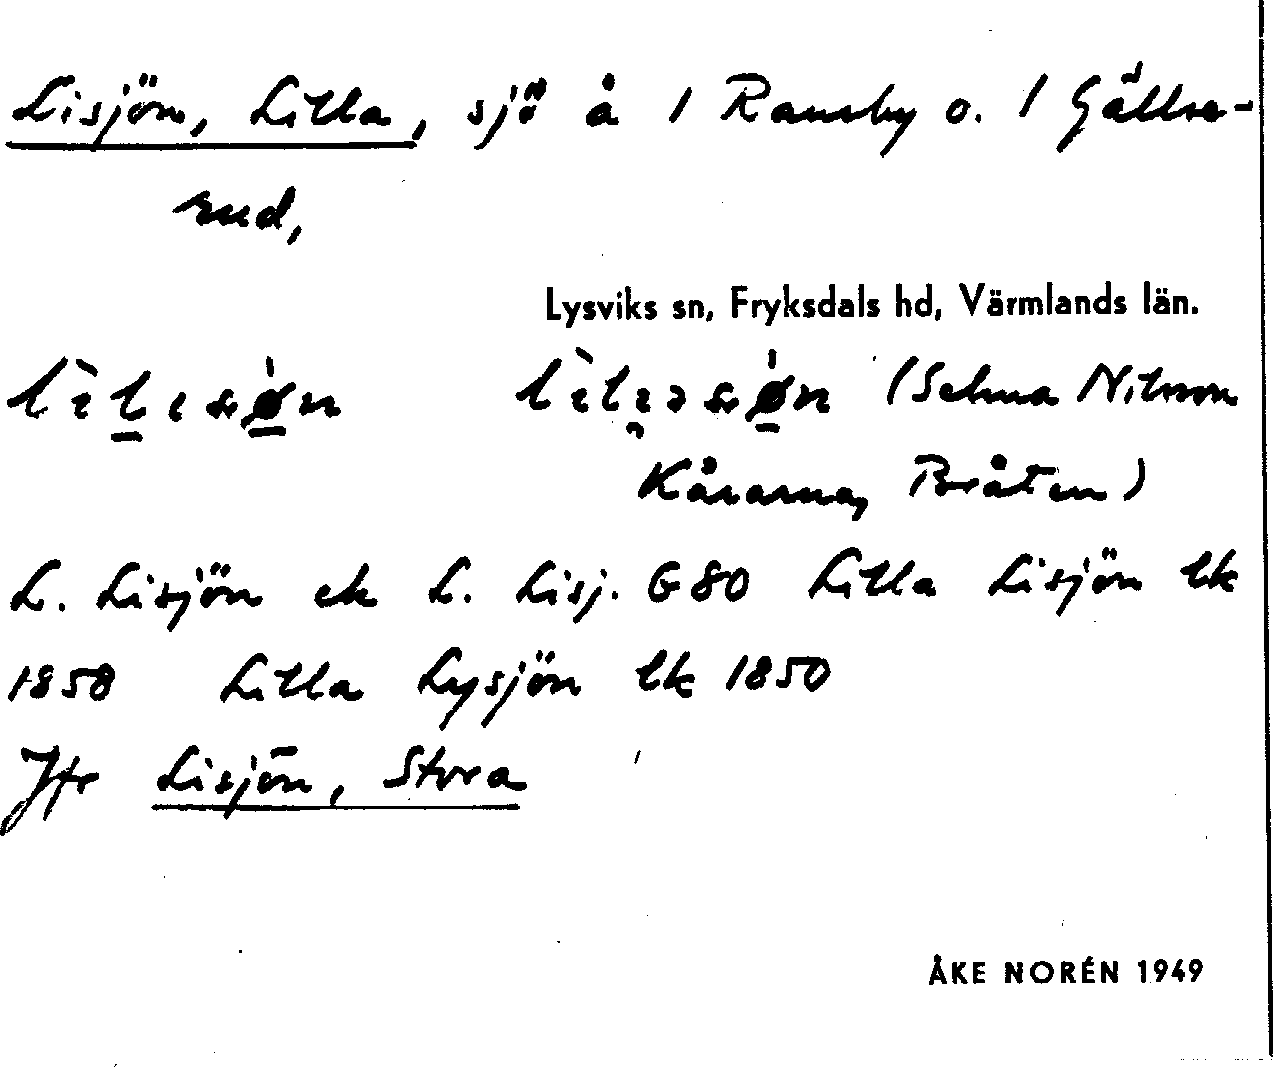 Lisjön, Lilla, sjö å 1 Ransby o. 1 Gällse-
rud,
Lysviks sn, Fryksdals hd, Värmlands län.
(Selma Nilsson
Kårarna, Bråten)
L. Lisjön ek L. Lisj. G80 Lilla Lisjön lk
1858 Lilla Lysjön lk 1850
Jfr Lisjön, Stora
ÅKE NORÉN 1949